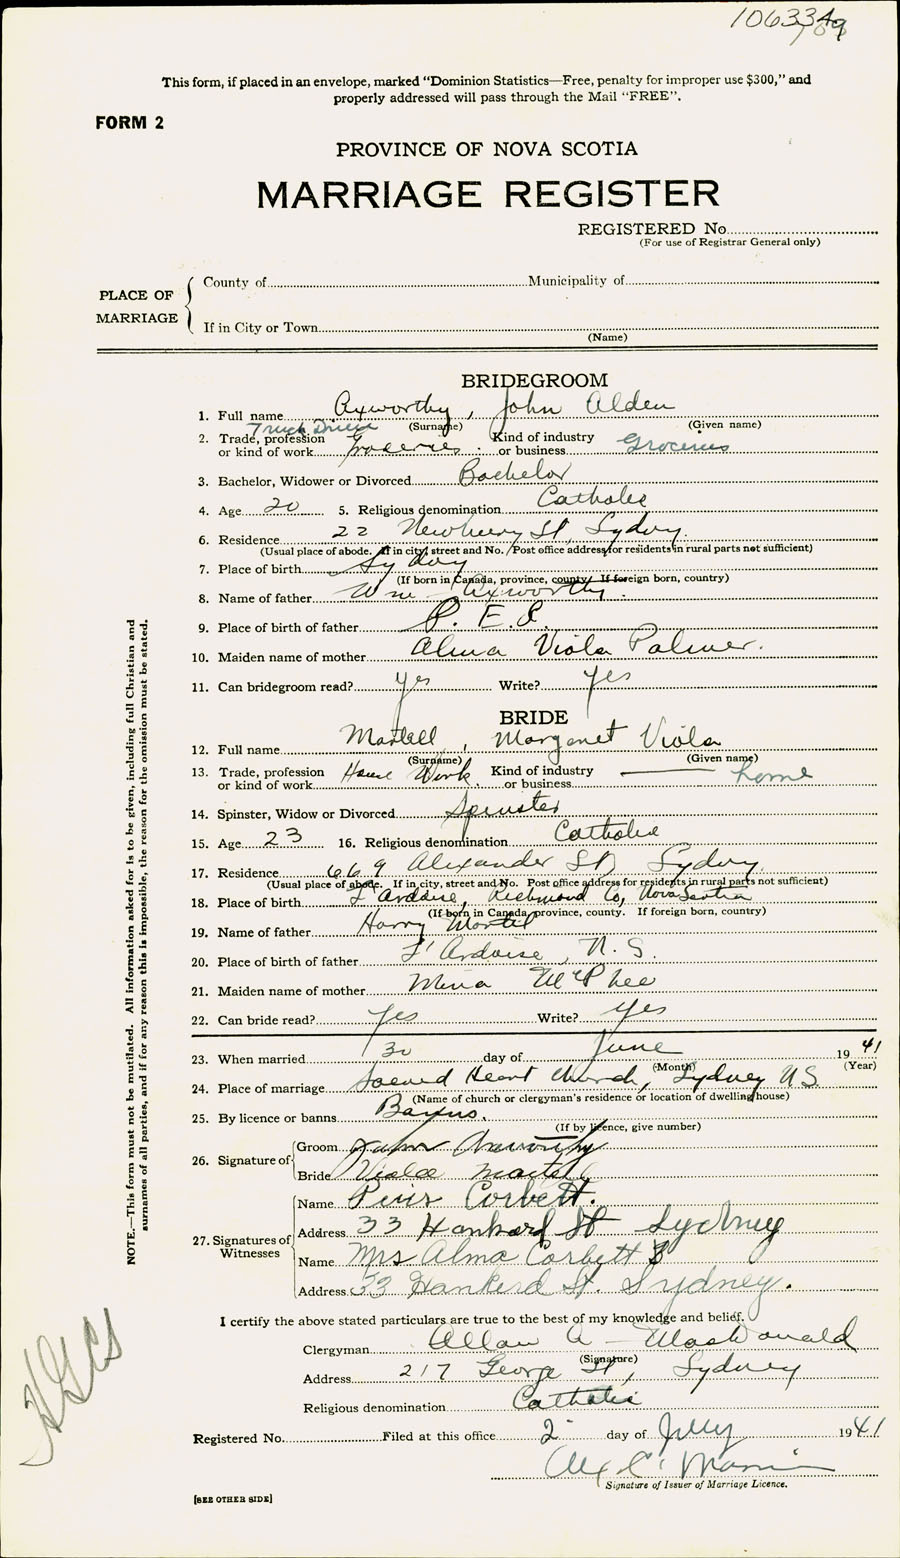 This form, if placed in an envelope, marked “Dominion Statistics—Free, penalty for improper use $300,” and
properly addressed will pass through the Mail “FREE”.
FORM 2
PROVINCE OF NOVA SCOTIA
MARRIAGE REGISTER
REGISTERED No
(For use of Registrar General only)
PLACE OF MARRIAGE
County of Municipality of
If in City or Town
(Name)
BRIDEGROOM
1. Full name Axworthy, John Alden
(Surname) (Given name)
Truck Driver
2. Trade, profession or kind of work Groceries Kind of industry or business Groceries
3. Bachelor, Widower or Divorced Bachelor
4. Age 20 5. Religious denomination Catholic
6. Residence 22 Newbury St, Sydney
(Usual place of abode. If in city, street and No. Post office address for residents in rural parts not sufficient)
7. Place of birth Sydney
(If born in Canada, province, county. If foreign born, country)
8. Name of father Wm Axworthy.
9. Place of birth of father P. E. I.
10. Maiden name of mother Alma Viola Palmer.
11. Can bridegroom read? yes Write? yes
BRIDE
12. Full name Martell, Margaret Viola
(Surname) (Given name)
13. Trade, profession or kind of work House Work. Kind of industry or business home
14. Spinster, Widow or Divorced Spinster
15. Age 23 16. Religious denomination Catholic
17. Residence 669 Alexander St, Sydney
(Usual place of abode. If in city, street and No. Post office address for residents in rural parts not sufficient)
18. Place of birth L'Ardoise, Richmond Co, Nova Scotia
(If born in Canada, province, county. If foreign born, country)
19. Name of father Harry Martell
20. Place of birth of father L'Ardoise, N. S.
21. Maiden name of mother Mina McPhee
22. Can bride read? Yes Write? Yes
23. When married 30 day of June 1941
(Month) (Year)
24. Place of marriage Sacred Heart Church, Sydney N.S.
(Name of church or clergyman's residence or location of dwelling house)
25. By licence or banns Banns.
(If by licence, give number)
26. Signature of Groom John Axworthy
Bride Viola Martell
27. Signatures of Witnesses Name Corbett.
Address 33 Hankard St Sydney
Name Mrs Alma Corbett
Address 33 Hankerd St. Sydney.
I certify the above stated particulars are true to the best of my knowledge and belief.
Clergyman Allan A MacDonald
(Signature)
Address 217 George St, Sydney
Religious denomination Catholic
Registered No. Filed at this office 2 day of July 1941
Signature of Issuer of Marriage Licence.
[SEE OTHER SIDE]
NOTE.—This form must not be mutilated. All information asked for is to be given, including full Christian and
surnames of all parties, and if for any reason this is impossible, the reason for the omission must be stated.